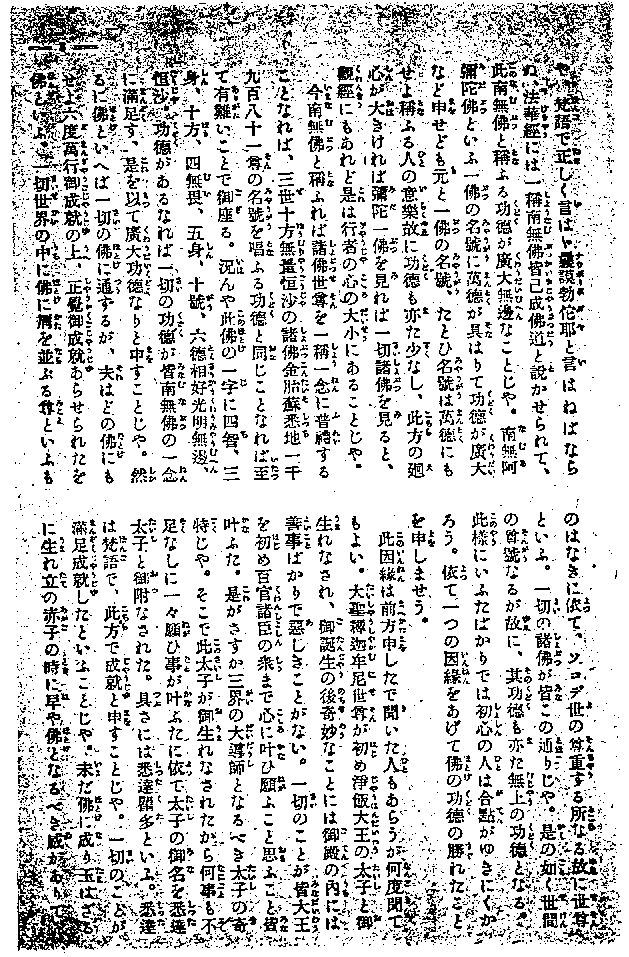 や、梵語で正しく言はゞ曩謨勃佗耶と言はねばなら
ぬ、法華經には一稱南無佛皆已成佛道と說かせられて、
此南無佛と稱ふる功德が廣大無邊なことじや。南無阿
彌陀佛といふ一佛の名號に萬德が具はりて功德が廣大
など申せども元と一佛の名號、たとひ名號は萬德にも
せよ稱ふる人の意樂故に功德も亦た少なし、此方の廻
心が大きければ彌陀一佛を見れば一切諸佛を見ると、
觀經にもあれど是は行者の心の大小にあることじや。
今南無佛と稱ふれば諸佛世尊を一稱一念に普禮する
ことなれば、三世十方無量恒沙の諸佛金胎蘇悉地一千
九百八十一尊の名號を唱ふる功德と同じことなれば至
て有難いことで御座る。況んや此佛の一字に四智、三
身、十力、四無畏、五身、十號、六德相好光明無邊、
恒沙の功德があるなれば一切の功德が皆南無佛の一念
に滿足す、是を以て廣大功德なりと申すことじや。然
るに佛といへば一切の佛に通ずるが、夫はどの佛にも
せよ六度萬行御成就の上、正覺御成就あらせられたを
佛といふ。一切世界の中に佛に肩を並ぶる尊といふも
のはなきに依て、ソコデ世の尊重する所なる故に世尊
といふ。一切の諸佛が皆この通りじや。是の如く世間
の尊號なるが故に、其功德も亦た無上の功德となる。
此樣にいふたばかりでは初心の人は合點がゆきにくか
ろう。依て一つの因緣をあげて佛の功德の勝れたこと
を申しませう。
此因緣は前方申したで聞いた人もあらうが何度聞て
もよい。大聖釋迦牟尼世尊が初め淨飯大王の太子と御
生れなされ、御誕生の後奇妙なことには御殿の內には
善事ばかりで惡しきことがない。一切のことが皆大王
を初め百官諸臣の衆まで心に叶ひ願ふこと思ふこと皆
叶ふた。是がさすが三界の大導師となるべき太子の奇
特じや。そこで此太子が御生れなされたから何事も不
足なしに一々願ひ事が叶ふたに依て太子の御名を悉達
太子と御附なされた。具さには悉達羅多といふ。悉達
は梵語で、此方で成就と申すことじや。一切のことが
滿足成就したといふことじや。未だ佛に成り玉はざる
に生れ立の赤子の時に早や佛となるべき威がありて